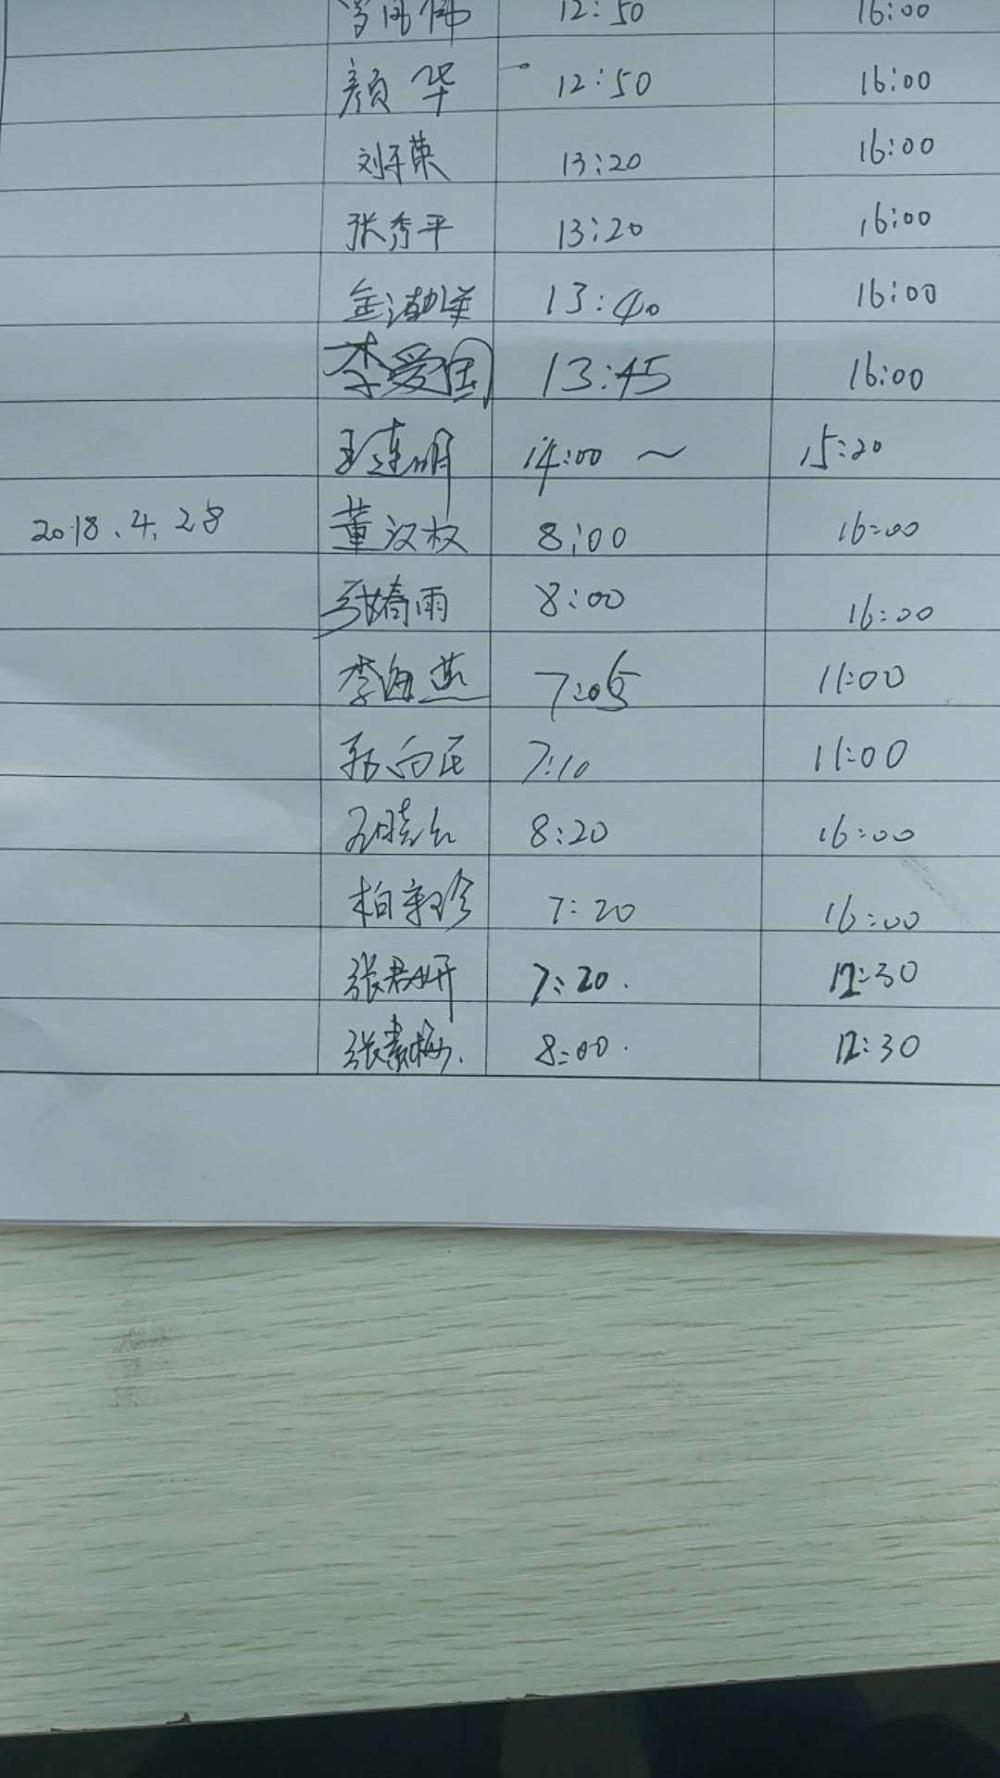 12:50 16:00
颜华 12:50 16:00
刘子荣 13:20 16:00
张秀平 13:20 16:00
13:40 16:00
李爱国 13:45 16:00
王连明 14:00 ~ 15:20
2018.4.28 董汉权 8:00 16:00
张春雨 8:00 16:00
李海燕 7:05 11:00
向民 7:10 11:00
8:20 16:00
柏 珍 7:20 16:00
张君妍 7:20. 12:30
张素梅. 8:00. 12:30